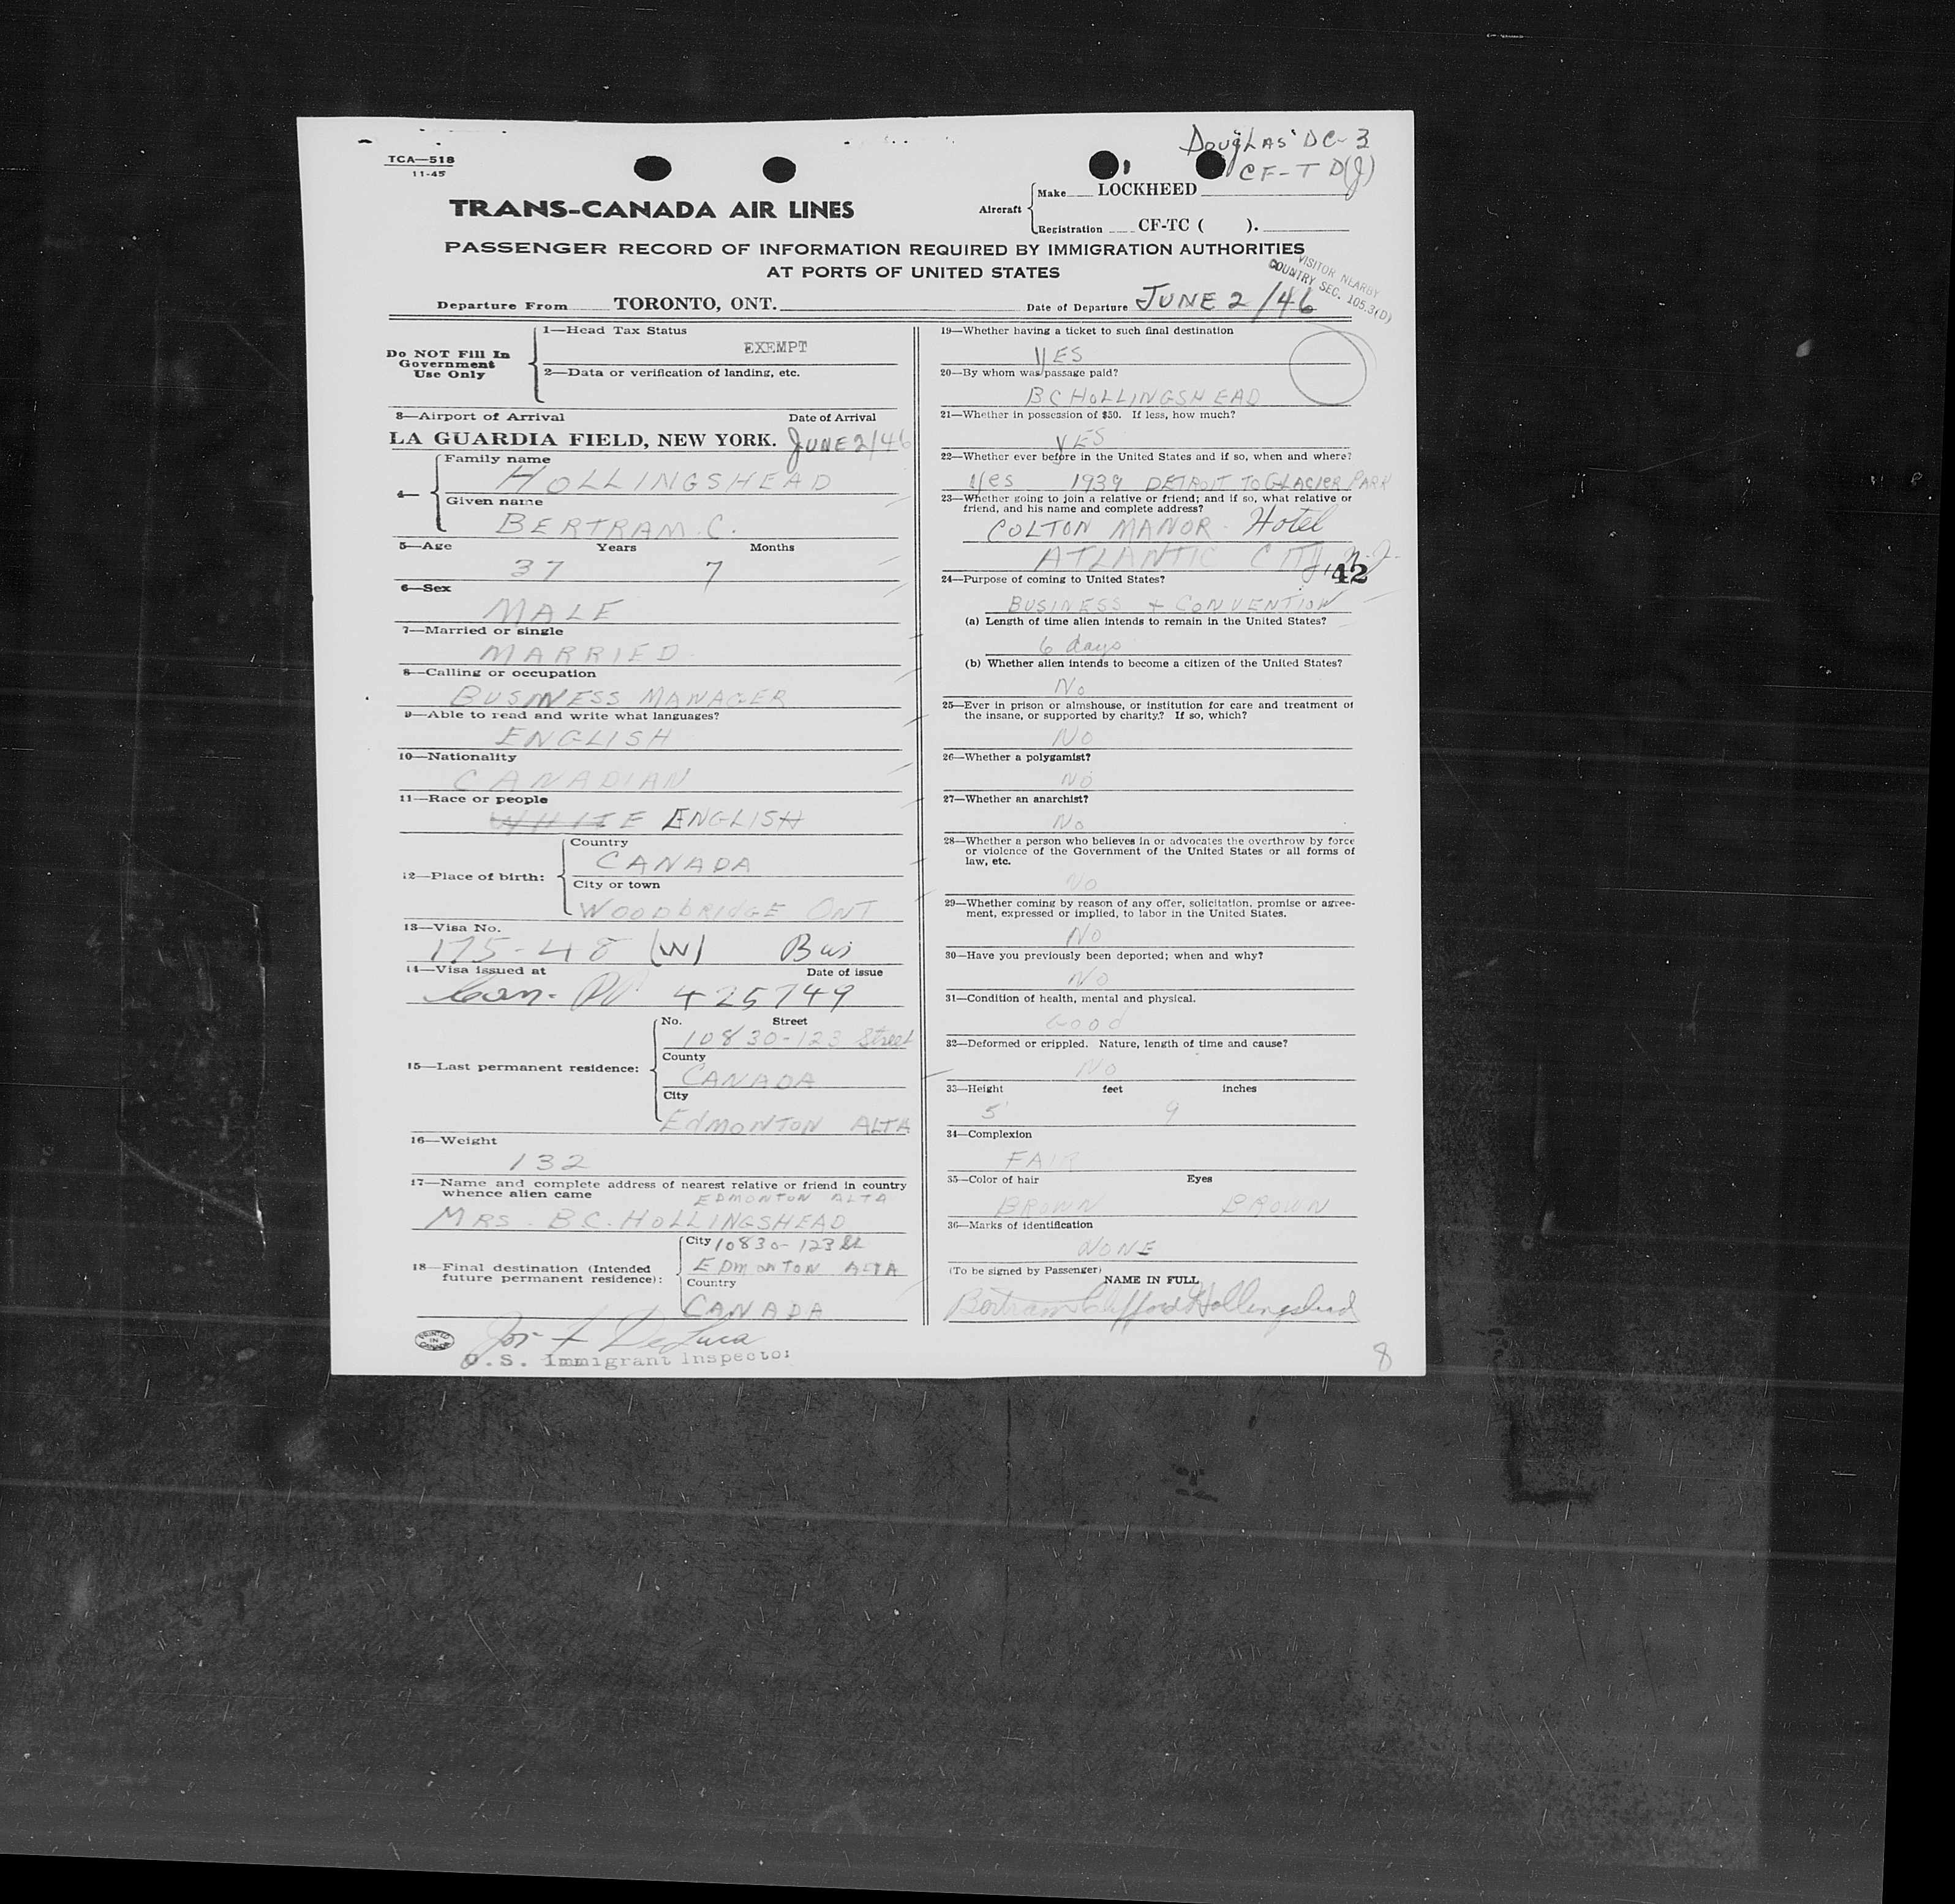 Douglas DC-3
CF-T D(J)
TCA—518
11-45
TRANS-CANADA AIR LINES
Aircraft
Make LOCKHEED
Registration CF-TC ( ).
PASSENGER RECORD OF INFORMATION REQUIRED BY IMMIGRATION AUTHORITIES
AT PORTS OF UNITED STATES
VISITOR NEARBY
COUNTRY SEC. 105.3(D)
Departure From TORONTO, ONT. Date of Departure JUNE 2/46
Do NOT Fill In
Government
Use Only
1—Head Tax Status
EXEMPT
2—Data or verification of landing, etc.
3—Airport of Arrival Date of Arrival
LA GUARDIA FIELD, NEW YORK. JUNE 2/46
4—
Family name
HOLLINGSHEAD
Given name
BERTRAM C.
5—Age Years Months
37 7
6—Sex
MALE
7—Married or single
MARRIED
8—Calling or occupation
BUSINESS MANAGER
9—Able to read and write what languages?
ENGLISH
10—Nationality
CANADIAN
11—Race or people
WHITE ENGLISH
12—Place of birth:
Country
CANADA
City or town
WOODbRIdGE ONT
13—Visa No.
175-48 (W) Bus
14—Visa issued at Date of issue
Can. PP 425749
15—Last permanent residence:
No. Street
10830-123 Street
County
CANADA
City
EdmONTON ALTA
16—Weight
132
17—Name and complete address of nearest relative or friend in country
whence alien came
EDMONTON ALTA
MRS. B.C. HOLLINGSHEAD
18—Final destination (Intended
future permanent residence):
City 10830-123 St
EDMONTON ALTA
Country
CANADA
PRINTED
IN
CANADA
Jos F DeLuca
U.S. Immigrant Inspector
19—Whether having a ticket to such final destination
YES
20—By whom was passage paid?
B C HOLLINGSHEAD
21—Whether in possession of $50. If less, how much?
YES
22—Whether ever before in the United States and if so, when and where?
Yes 1939 DETROIT TO GLACIER PARK
23—Whether going to join a relative or friend; and if so, what relative or
friend, and his name and complete address?
COLTON MANOR. Hotel
ATLANTIC CITY, N.J.
42
24—Purpose of coming to United States?
BUSINESS + CONVENTION
(a) Length of time alien intends to remain in the United States?
6 days
(b) Whether alien intends to become a citizen of the United States?
No
25—Ever in prison or almshouse, or institution for care and treatment of
the insane, or supported by charity? If so, which?
NO
26—Whether a polygamist?
NO
27—Whether an anarchist?
No
28—Whether a person who believes in or advocates the overthrow by force
or violence of the Government of the United States or all forms of
law, etc.
NO
29—Whether coming by reason of any offer, solicitation, promise or agree-
ment, expressed or implied, to labor in the United States.
NO
30—Have you previously been deported; when and why?
NO
31—Condition of health, mental and physical.
Good
32—Deformed or crippled. Nature, length of time and cause?
NO
33—Height feet inches
5' 9
34—Complexion
FAIR
35—Color of hair Eyes
BROWN BROWN
36—Marks of identification
NONE
(To be signed by Passenger)
NAME IN FULL
Bertram Clifford Hollingshead
8